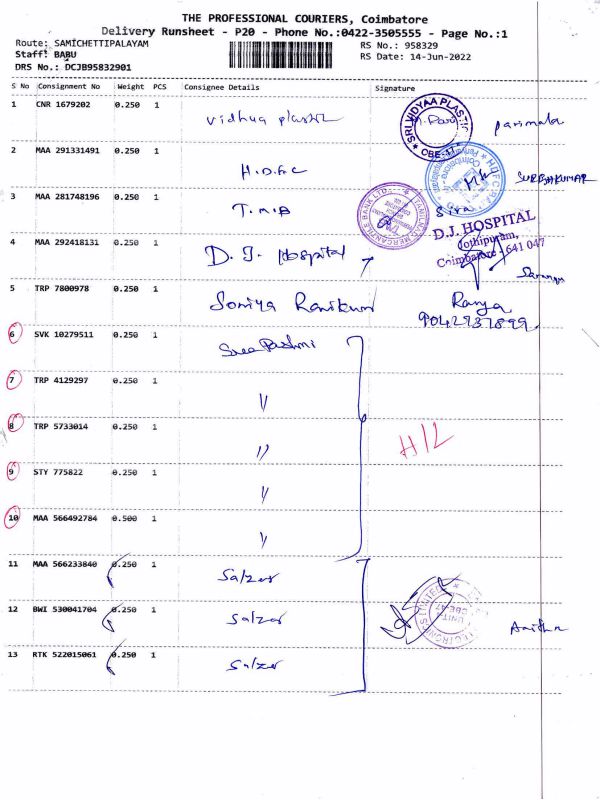 THE PROFESSIONAL COURIERS, Coimbatore
Delivery Runsheet - P20 - Phone No.:0422-3505555 - Page No.:1
Route: SAMICHETTIPALAYAM RS No.: 958329
Staff: BABU RS Date: 14-Jun-2022
DRS No.: DCJB95832901
S No Consignment No Weight PCS Consignee Details Signature
1 CNR 1679202 0.250 1 Vidhya SRI VIDYAA PLASTIC CBE-47 parimala
2 MAA 291331491 0.250 1 H.D.F.C Coimbatore SURESHKUMAR
3 MAA 281748196 0.250 1 T.M.B TAMILNAD MERCANTILE BANK LTD. Siva
4 MAA 292418131 0.250 1 D.J. Hospital D.J. HOSPITAL
Jothipuram,
Coimbatore 641 047
5 TRP 7800978 0.250 1 Soniya Ranya
9042937899
6 SVK 10279511 0.250 1
7 TRP 4129297 0.250 1 "
8 TRP 5733014 0.250 1 " H/L
9 STY 775822 0.250 1 "
10 MAA 566492784 0.500 1 "
11 MAA 566233840 0.250 1 Salzer
12 BWI 530041704 0.250 1 Salzer
13 RTK 522015061 0.250 1 Salzer